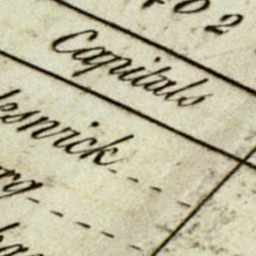 402
Capitals
lesnick
rg